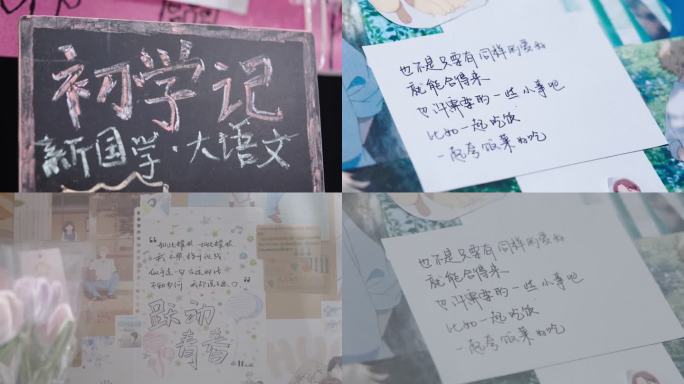 初学记
新国学·大语文
也不是只要有同样的爱好
就能合得来
也许需要的一些小事吧
比如一起吃饭
一起夸饭菜好吃
跃动
青春
也不是只要有同样的爱好
就能合得来
也许需要的一些小事吧
比如一起吃饭
一起夸饭菜好吃